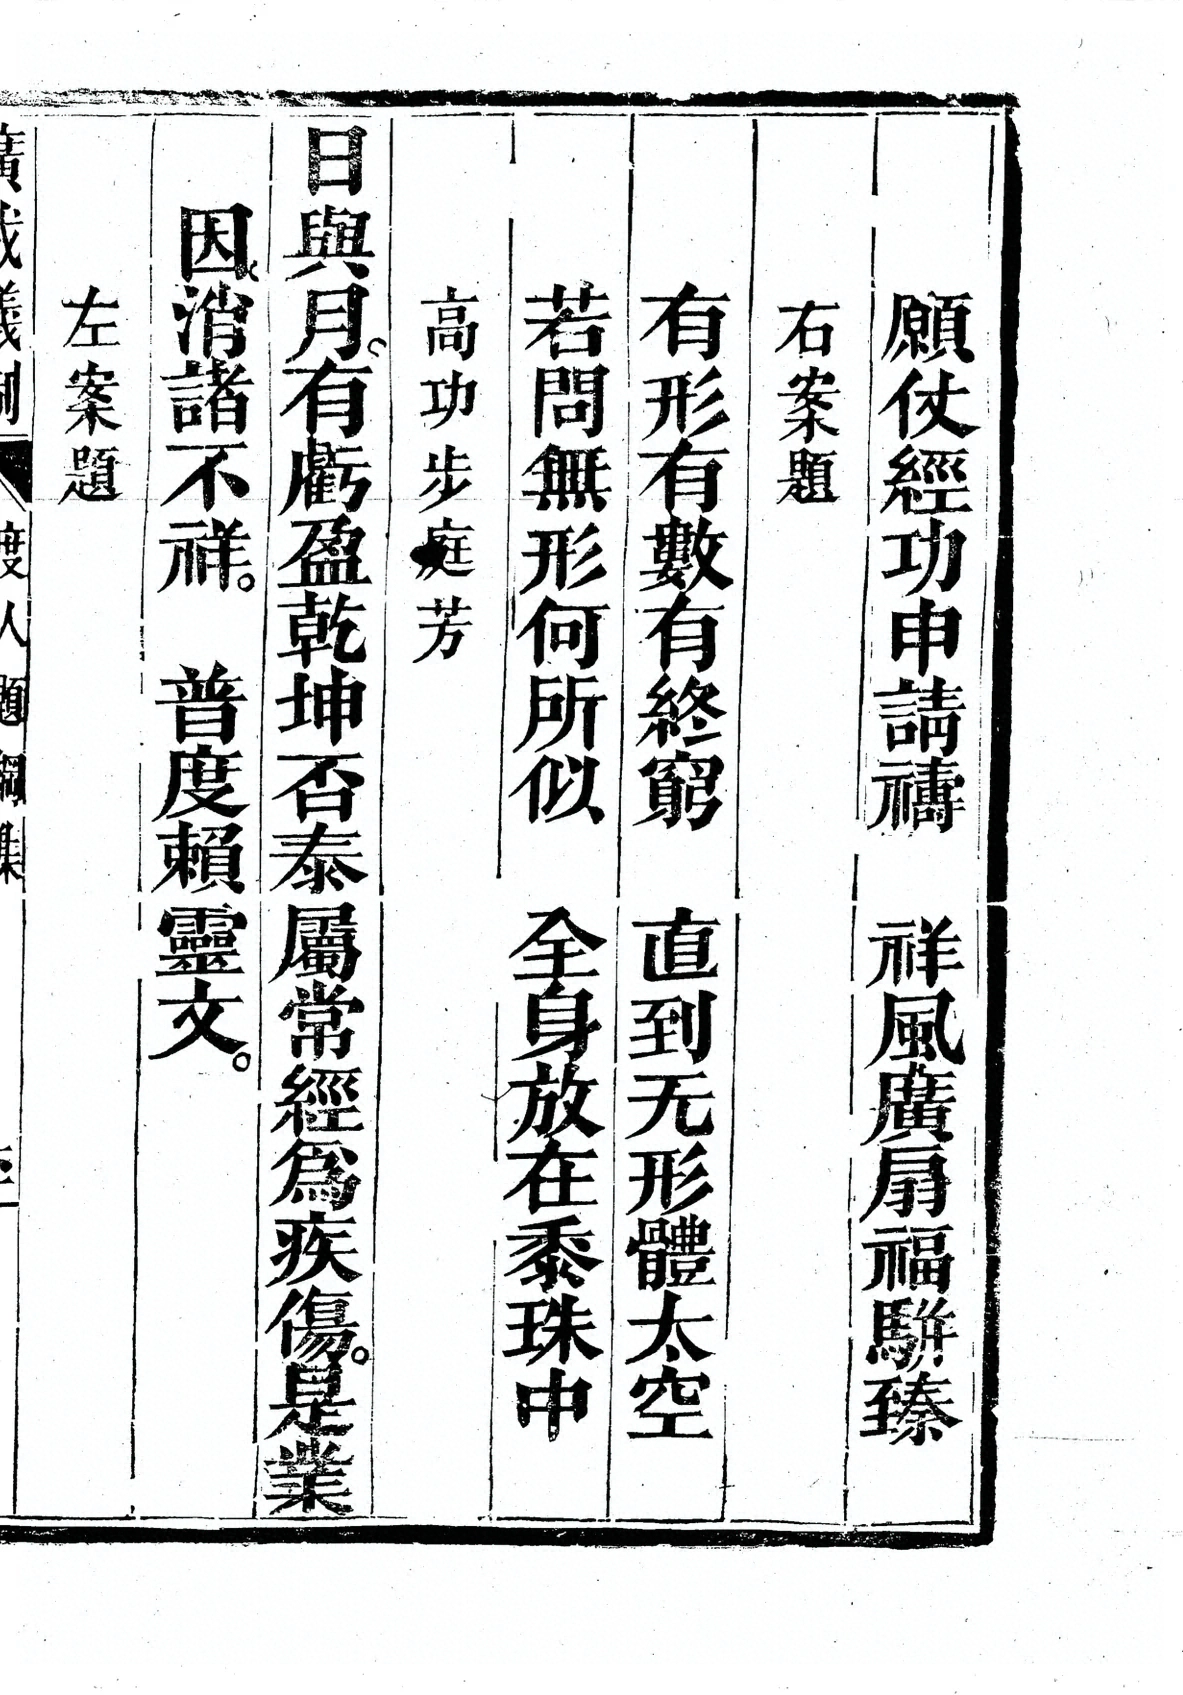 願仗經功申請禱　祥風廣扇福駢臻
右案題
有形有數有終窮　直到无形體太空
若問無形何所似　全身放在黍珠中
高功步庭芳
日與月。有虧盈乾坤否泰屬常經爲疾傷。是業
因。消諸不祥。　普度賴靈文。
左案題
廣成儀制　度人題綱集